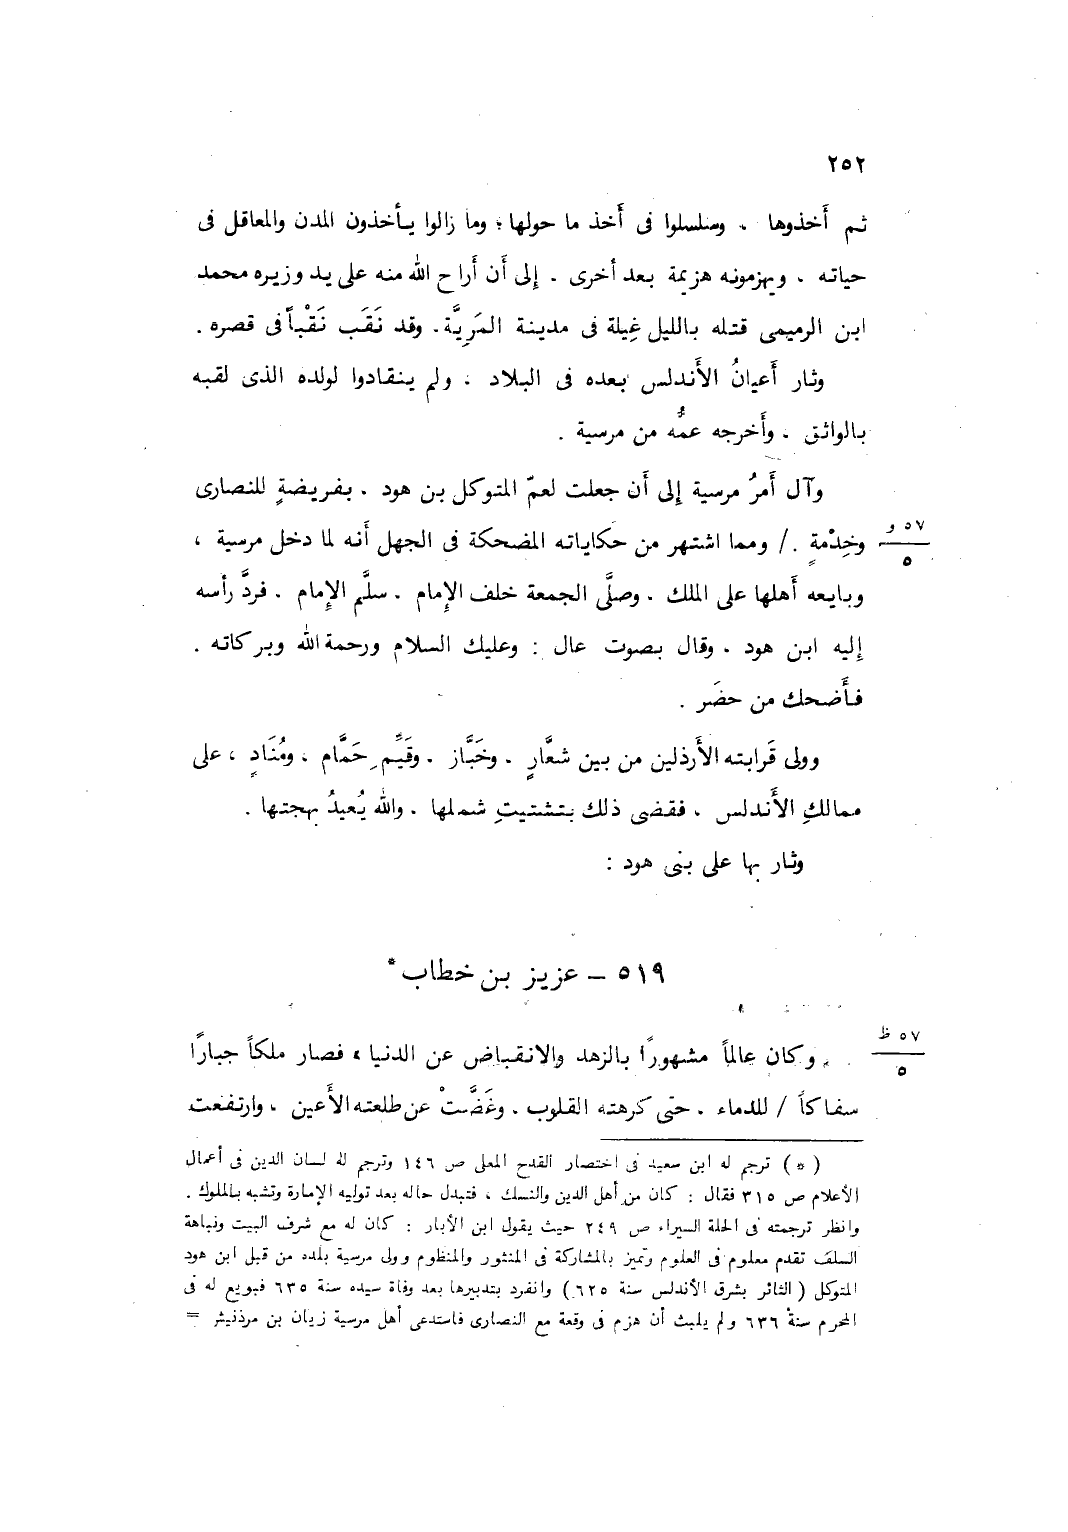 ٢٥٢
ثم أَخذوها ، وسلسلوا فى أَخذ ما حولها ؛ وما زالوا يأخذون المدن والمعاقل فى
حياته ، ويهزمونه هزيمة بعد أخرى . إلى أَن أَراح الله منه على يد وزيره محمد
ابن الرميمى قتله بالليل غِيلة فى مدينة المَرِيَّة. وقد نَقَب نَقْباً فى قصره .
وثار أَعيانُ الأَندلس بعده فى البلاد ، ولم ينقادوا لولده الذى لقبه
بالواثق ، وأَخرجه عمُّه من مرسية .
وآل أَمرُ مرسية إلى أَن جعلت لعمّ المتوكل بن هود . بفريضةٍ للنصارى
٥٧ و
٥
وخِدْمةٍ ./ ومما اشتهر من حكاياته المضحكة فى الجهل أَنه لما دخل مرسية ،
وبايعه أَهلها على الملك . وصلَّى الجمعة خلف الإمام . سلَّم الإمام . فردَّ رأسه
إليه ابن هود . وقال بصوت عال : وعليك السلام ورحمة الله وبركاته .
فأَضحك من حضَر .
وولى قَرابته الأَرذلين من بين شعَّارٍ . وخَبَّاز . وقَيِّم حَمَّام ، ومُنَادٍ ، على
ممالكِ الأَندلس ، فقضى ذلك بتشتيتِ شملها . والله يُعيدُ بهجتها .
وثار بها على بنى هود :
٥١٩ – عزيز بن خطاب *
٥٧ ظ
٥
وكان عالماً مشهورًا بالزهد والانقباض عن الدنيا ، فصار ملكاً جبارًا
سفاكاً / للدماء ، حتى كرهته القلوب . وغَضَّتْ عن طلعته الأَعين ، وارتفعت
( * ) ترجم له ابن سعيد فى اختصار القدح المعلى ص ١٤٦ وترجم له لسان الدين فى أعمال
الأعلام ص ٣١٥ فقال : كان من أهل الدين والنسك ، فتبدل حاله بعد توليه الإمارة وتشبه بالملوك .
وانظر ترجمته فى الحلة السيراء ص ٢٤٩ حيث يقول ابن الأبار : كان له مع شرف البيت ونباهة
السلف تقدم معلوم فى العلوم وتميز بالمشاركة فى المنثور والمنظوم وولى مرسية بلده من قبل ابن هود
المتوكل ( الثائر بشرق الأندلس سنة ٦٢٥ ) وانفرد بتدبيرها بعد وفاة سيده سنة ٦٣٥ فبويع له فى
المحرم سنة ٦٣٦ ولم يلبث أن هزم فى وقعة مع النصارى فاستدعى أهل مرسية زيان بن مرذنيش =